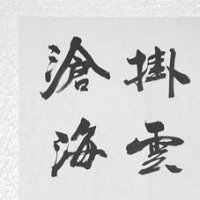 掛雲
滄海